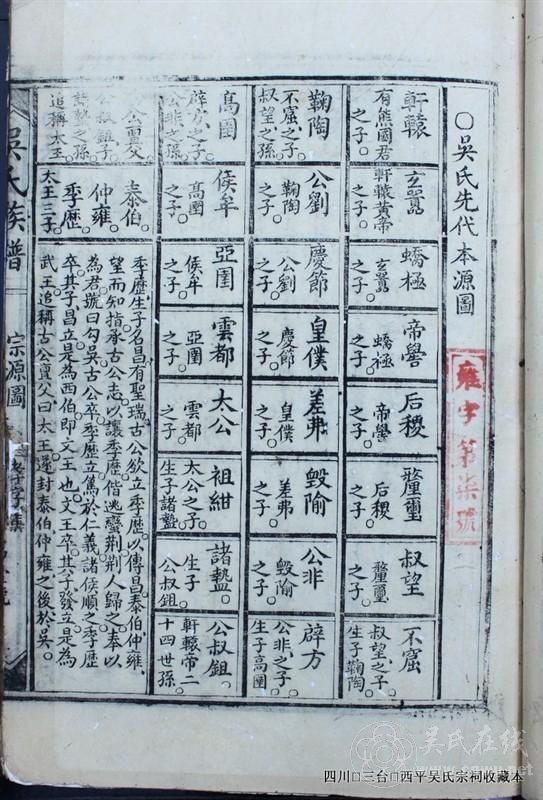 ○吳氏先代本源圖
雍字第柒號
軒轅
有熊國君
之子。
玄囂
軒轅黃帝
之子。
蟜極
玄囂
之子。
帝嚳
蟜極
之子。
后稷
帝嚳
之子。
𨤲璽
后稷
之子。
叔望
𨤲璽
之子。
不窋
叔望之子
生子鞠陶
鞠陶
不窋之子
叔望之孫
公劉
鞠陶
之子。
慶節
公劉
之子。
皇僕
慶節
之子。
差弗
皇僕
之子。
毀隃
差弗
之子。
公非
毀隃
之子。
辟方
公非之子
生子高圉
高圉
辟方之子
公非之孫
侯牟
高圉
之子。
亞圉
侯牟
之子。
雲都
亞圉
之子。
太公
雲都
之子。
祖紺
太公之子。
生子諸盩
諸盩。
生子
公叔鉏
公叔鉏
軒轅帝二
十四世孫。
公亶父
公叔鉏子
諸盩之孫。
追稱太王
泰伯。
仲雍。
季歷。
太王三子。
季歷生子名昌有聖瑞。古公欲立季歷。以傳昌。泰伯仲雍。
望而知指承古公志。以讓季歷。偕逃蠻荆。荆人歸之。奉以
為君。號曰勾吳。古公卒。季歷立。篤於仁義。諸侯順之。季歷
卒。其子昌立。是為西伯。即文王也。文王卒。其子發立。是為
武王。追稱古公亶父曰太王。遂封泰伯仲雍之後於吳。
吳氏族譜
宗源圖
吴氏在线
四川□三台□西平吴氏宗祠收藏本